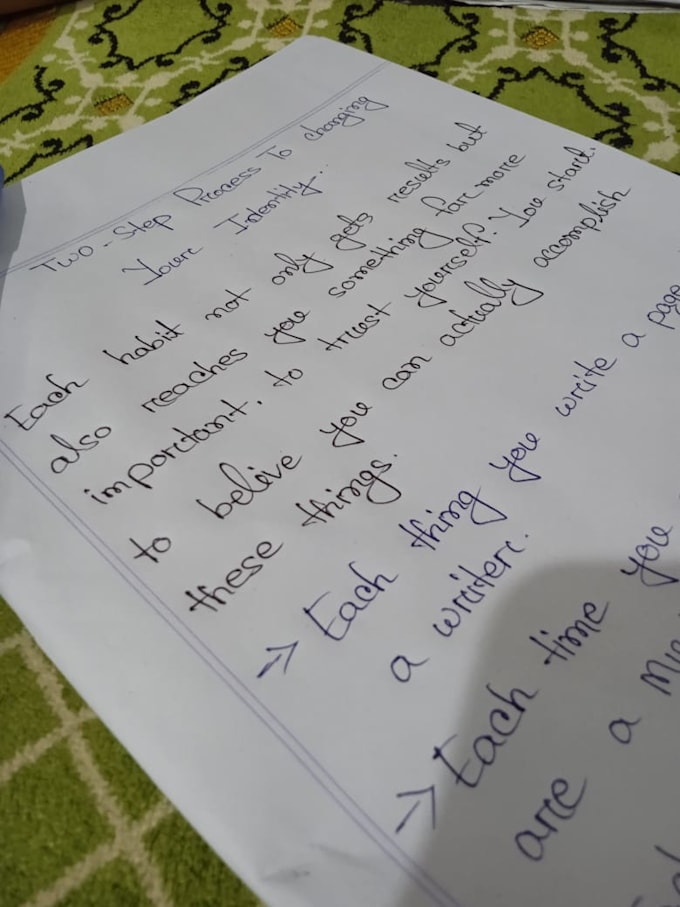 Two-Step Process To changing
Your Identity.
Each habit not only gets results but
also reaches you something far more
important. to trust yourself. You start.
to believe you can actually accomplish
these things.
→ Each thing you write a page
a writer.
→ Each time you
are a